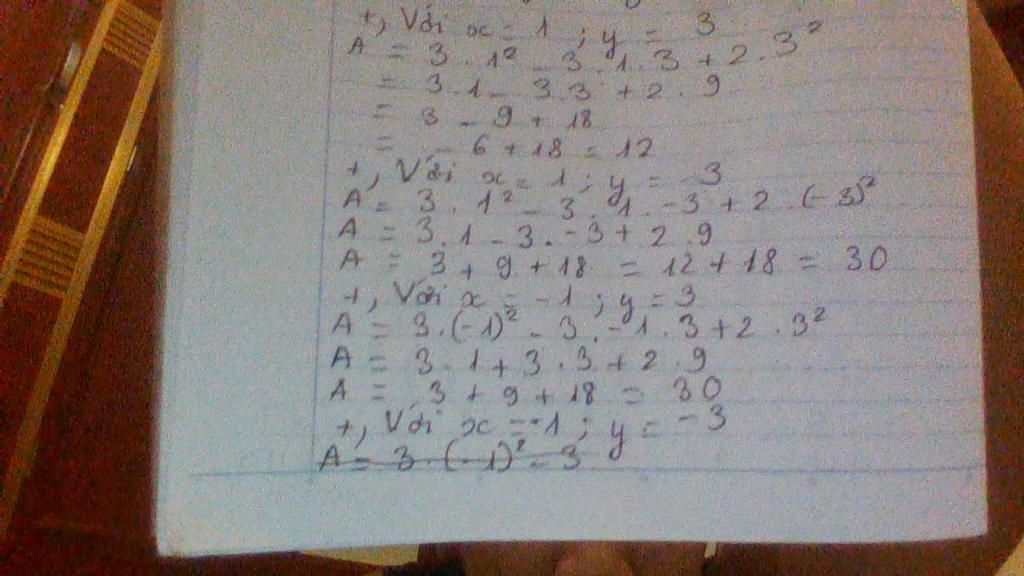 +, Với x = 1 ; y = 3
A = 3 . 1² - 3 . 1 . 3 + 2 . 3²
= 3 . 1 - 3 . 3 + 2 . 9
= 3 - 9 + 18
= - 6 + 18 = 12
+, Với x = 1 ; y = -3
A = 3 . 1² - 3 . 1 . -3 + 2 . (-3)²
A = 3 . 1 - 3 . -3 + 2 . 9
A = 3 + 9 + 18 = 12 + 18 = 30
+, Với x = -1 ; y = 3
A = 3 . (-1)² - 3 . -1 . 3 + 2 . 3²
A = 3 . 1 + 3 . 3 + 2 . 9
A = 3 + 9 + 18 = 30
+, Với x = -1 ; y = -3
A = 3 . (-1)² - 3